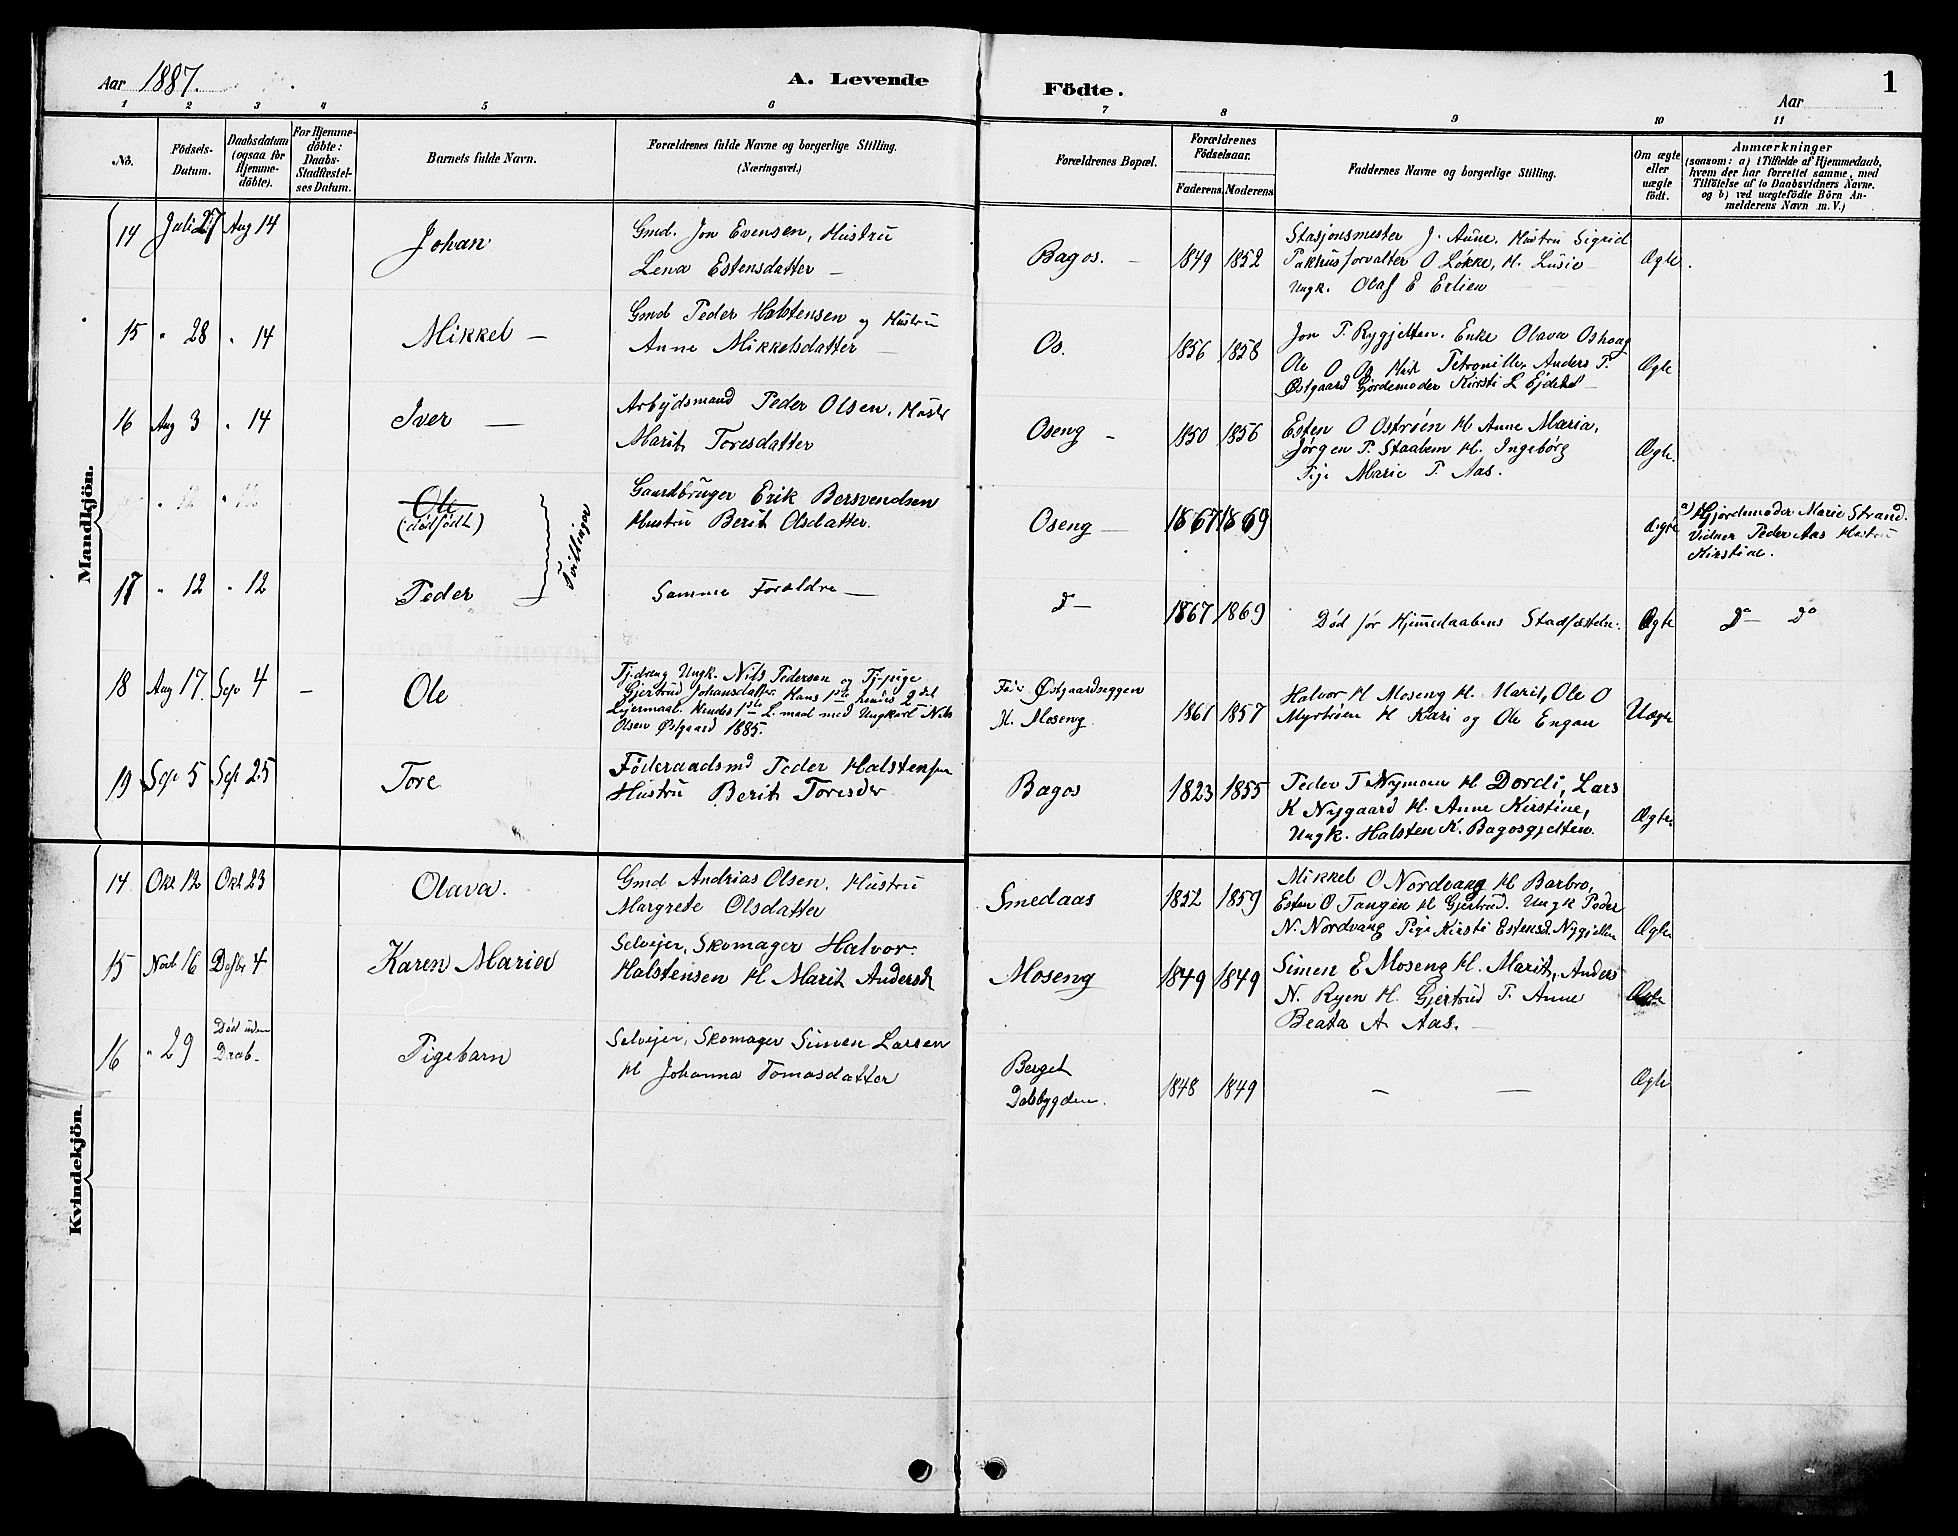 Aar 1887.
A. Levende Födte.
Aar
1
1 2 3 4 5 6 7 8 9 10 11
No.
Födsels-
Datum.
Daabsdatum
(ogsaa for
Hjemme-
döbte).
For Hjemme-
döbte:
Daabs-
Stadfæstel-
ses Datum.
Barnets fulde Navn.
Forældrenes fulde Navne og borgerlige Stilling.
(Næringsvei.)
Forældrenes Bopæl.
Forældrenes
Födselsaar.
Faderens. Moderens.
Faddernes Navne og borgerlige Stilling.
Om ægte
eller
uægte
födt.
Anmærkninger
(saasom: a) i Tilfælde af Hjemmedaab,
hvem der har forrettet samme, med
Tilföielse af to Daabsvidners Navne.
og b) ved uægtefödte Börn An-
melderens Navn m. V.)
Mandkjön.
14 Juli 27 Aug 14 Johan
Gmd. Jon Evensen, Hustru
Lena Estensdatter —
Bagos. — 1849 1852
Stasjonsmester J. Aune. Hustru Sigrid
Pakhusforvalter O Løkke, H. Lusie
Ungk. Olaf E Erlien
Ægte.
15 " 28 " 14 Mikkel —
Gmd Peder Halstensen og Hustru
Anne Mikkelsdatter —
Os. 1856 1858
Jon P. Rygjelten. Enke Olava Oshaug
Ole O Os Hust Petronille, Anders P.
Østgaard Gjordemoder Kirsti L Ejdet —
Ægte
16 Aug 3 " 14 Iver —
Arbejdsmand Peder Olsen, Hustr
Marit Toresdatter
Oseng - 1850 1856
Esten O Østrøen H Anne Maria,
Jørgen P. Staalem H. Ingebørg
Pige Marie P. Aas.
Ægte.
" 12 " 12 Ole
(dødfødt)
Tvillinger
Gaardbruger Erik Bersvendsen
Hustru Berit Olsdatter.
Oseng — 1867 1869
Ægte
a) Hjordemoder Marie Strand.
Vidner Peder Aas Hustru
Kirstine.
17 " 12 " 12 Peder
Samme Forældre —
D — 1867 1869
Død før Hjemmedaabens Stadfæstelse.
Ægte
Do — Do
18 Aug 17. Sep 4 — Ole
Tj.dreng Ungk. Nils Pedersen og Tj.pige
Gjertrud Johansdatter. Hans 1ste hendes 2det
Lejermaal. Hendes 1ste L.maal med Ungkarl Nils
Olsen Østgaard 1885.
Østgaardseggen
M. Moseng. 1861 1857
Halvor H Moseng H. Marit, Ole O
Myrtrøen H Kari og Ole Engan
Uægte
19 Sep 5 Sep 25 Tore
Føderaadsmd Peder Halstensen
Hustru Berit Toresdr
Bagos 1823 1855
Peder T Nymoen H Dordi, Lars
K Nygaard H. Anne Kirstine,
Ungk. Halsten K. Bagosgjelten.
Ægte.
Kvindekjön.
14 Okt 12 Okt 23 Olava.
Gmd Andrias Olsen. Hustru
Margrete Olsdatter
Smedaas 1852 1859
Mikkel O Nordvang H Barbro,
Esten O Tangen H Gjertrud. Ungk Peder
N. Nordvang Pige Kirsti Estensd. Nygjelten
Ægte
15 Novb 16 Desbr 4 Karen Maria
Selvejer, Skomager Halvor
Halstensen H Marit Andersd
Moseng 1849 1849
Simen E Moseng H. Marit, Anders
N. Ryen H. Gjertrud P. Anne
Beata A. Aas. —
Ægte
16 " 29 Død uden
Daab- Pigebarn
Selvejer, Skomager Simen Larsen
H Johanna Tomasdatter
Berget
Dalsbygden. 1848 1849 — —
Ægte